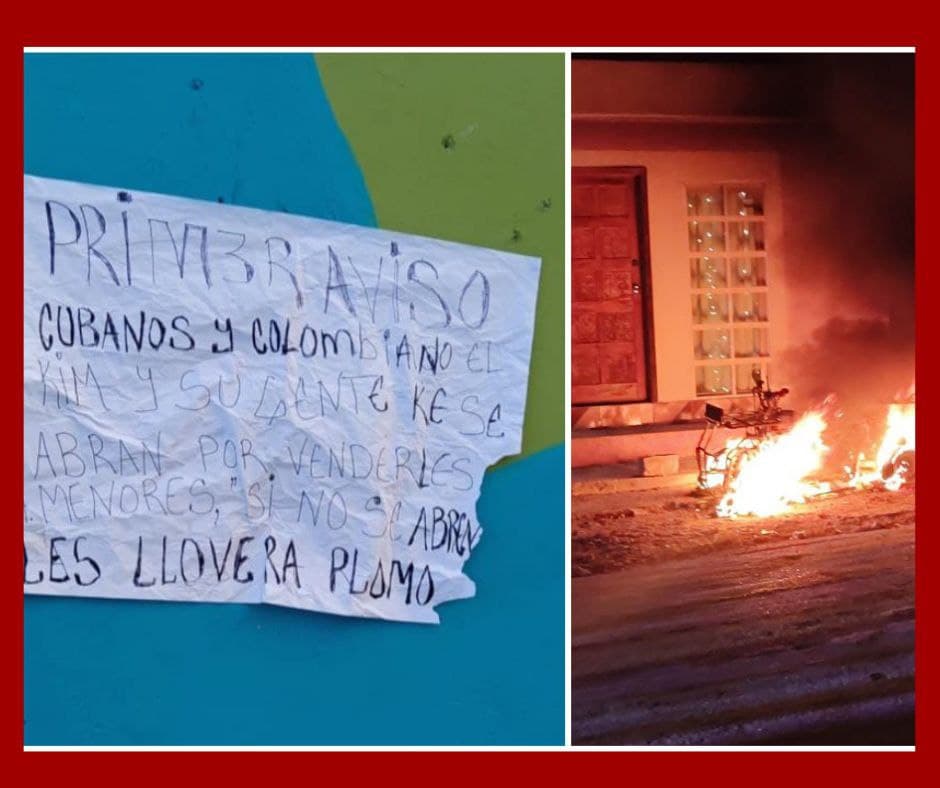 PRIM3R AViSO
CUBANOS Y COLOMBiANO EL
KIM Y SU GENTE KE SE
ABRAN POR VENDERLES
MENORES, "Si NO SE ABREN
LES LLOVERA PLOMO